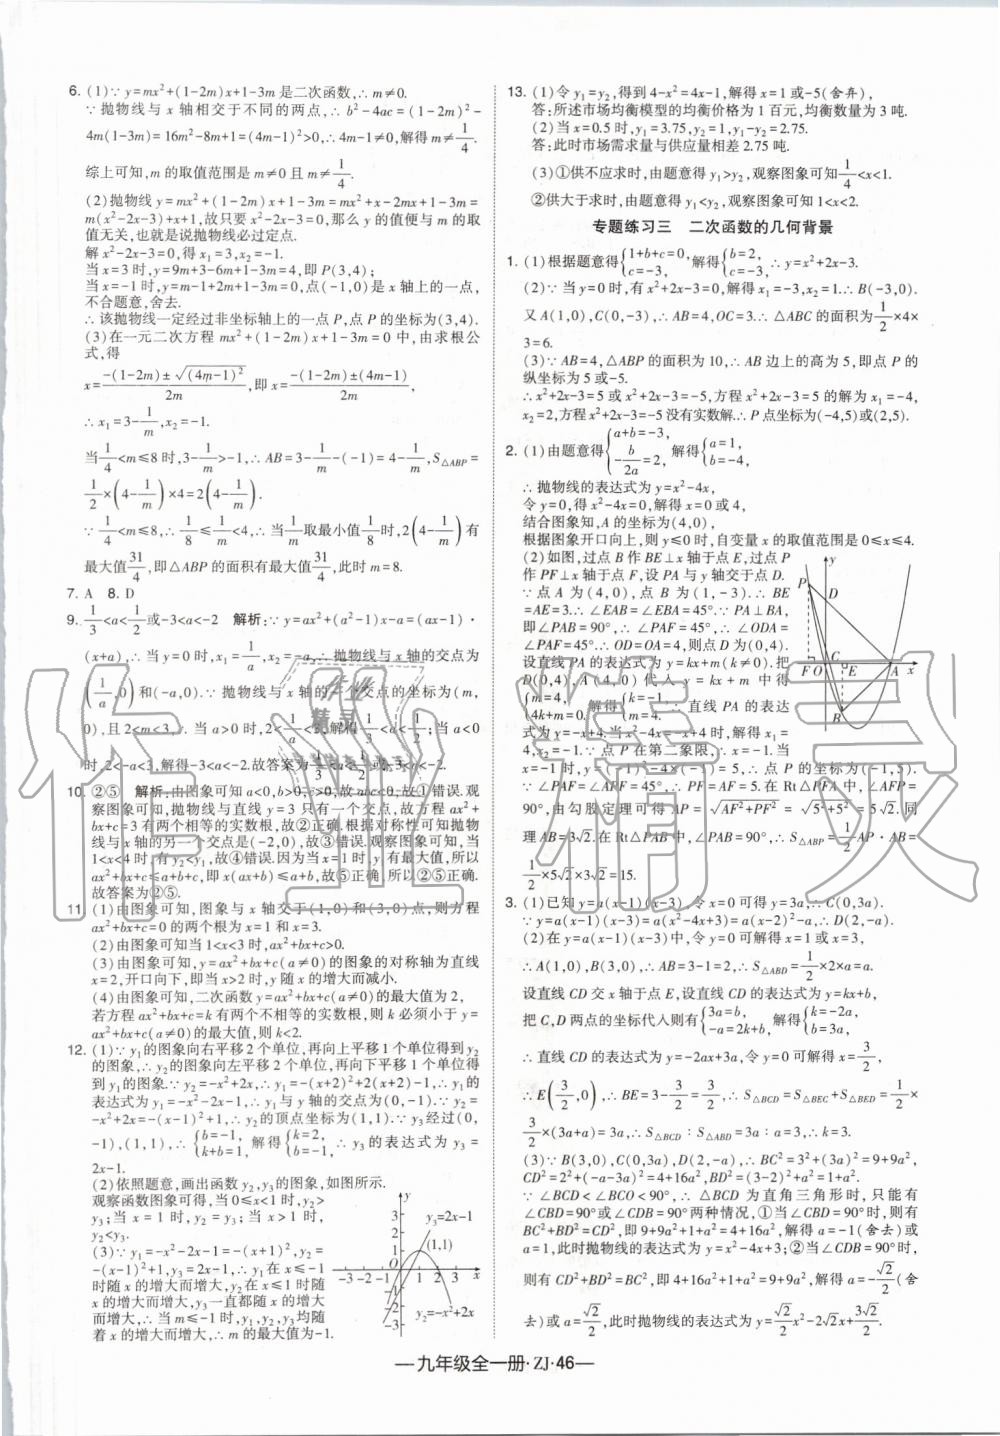 6. (1)∵ y=mx²+(1-2m)x+1-3m 是二次函数,∴ m≠0.
∵ 抛物线与 x 轴相交于不同的两点,∴ b²-4ac=(1-2m)²-
4m(1-3m)=16m²-8m+1=(4m-1)²>0,∴ 4m-1≠0,解得 m≠1/4.
综上可知,m 的取值范围是 m≠0 且 m≠1/4.
(2)抛物线 y=mx²+(1-2m)x+1-3m=mx²+x-2mx+1-3m=
m(x²-2x-3)+x+1,故只要 x²-2x-3=0,那么 y 的值便与 m 的取
值无关,也就是说抛物线必过定点.
解 x²-2x-3=0,得 x₁=3,x₂=-1.
当 x=3 时,y=9m+3-6m+1-3m=4,即 P(3,4);
当 x=-1 时,y=m-1+2m+1-3m=0,点(-1,0)是 x 轴上的一点,
不合题意,舍去.
∴ 该抛物线一定经过非坐标轴上的一点 P,点 P 的坐标为(3,4).
(3)在一元二次方程 mx²+(1-2m)x+1-3m=0 中,由求根公
式,得
x=(-(1-2m)±√(4m-1)²)/2m,即 x=(-(1-2m)±(4m-1))/2m,
∴ x₁=3-1/m,x₂=-1.
当1/4<m≤8 时,3-1/m>-1,∴ AB=3-1/m-(-1)=4-1/m,S△ABP=
1/2×(4-1/m)×4=2(4-1/m).
∵ 1/4<m≤8,∴ 1/8≤1/m<4,∴ 当1/m取最小值1/8时,2(4-1/m)有
最大值31/4,即△ABP 的面积有最大值31/4,此时 m=8.
7. A 8. D
9. 1/3<a<1/2或-3<a<-2 解析:∵ y=ax²+(a²-1)x-a=(ax-1)·
(x+a),∴ 当 y=0 时,x₁=1/a,x₂=-a,∴ 抛物线与 x 轴的交点为
(1/a,0)和(-a,0).∵ 抛物线与 x 轴的一个交点的坐标为(m,
0),且 2<m<3,∴ 当 a>0 时,2<1/a<3,解得1/3<a<1/2;当 a<0
时,2<-a<3,解得-3<a<-2.故答案为1/3<a<1/2或-3<a<-2.
10. ②⑤ 解析:由图象可知 a<0,b>0,c>0,故 abc<0,故①错误.观
察图象可知,抛物线与直线 y=3 只有一个交点,故方程 ax²+
bx+c=3 有两个相等的实数根,故②正确.根据对称性可知抛物
线与 x 轴的另一个交点是(-2,0),故③错误.观察图象可知,当
1<x<4 时,有 y₂<y₁,故④错误.因为当 x=1 时,y₁有最大值,所以
ax²+bx+c≤a+b+c,即 x(ax+b)≤a+b,故⑤正确.所以②⑤正确.
故答案为②⑤.
11. (1)由图象可知,图象与 x 轴交于(1,0)和(3,0)点,则方程
ax²+bx+c=0 的两个根为 x=1 和 x=3.
(2)由图象可知当 1<x<3 时,ax²+bx+c>0.
(3)由图象可知,y=ax²+bx+c(a≠0)的图象的对称轴为直线
x=2,开口向下,即当 x>2 时,y 随 x 的增大而减小.
(4)由图象可知,二次函数 y=ax²+bx+c(a≠0)的最大值为 2,
若方程 ax²+bx+c=k 有两个不相等的实数根,则 k 必须小于 y=
ax²+bx+c(a≠0)的最大值,则 k<2.
12. (1)∵ y₁的图象向右平移 2 个单位,再向上平移 1 个单位得到 y₂
的图象,∴ y₂的图象向左平移 2 个单位,再向下平移 1 个单位得
到 y₁的图象.∵ y₂=-x²+2x,∴ y₁=-(x+2)²+2(x+2)-1,∴ y₁的
表达式为 y₁=-x²-2x-1,∴ y₁与 y 轴的交点为(0,-1).∵ y₂=
-x²+2x=-(x-1)²+1,∴ y₂的顶点坐标为(1,1).∵ y₃经过(0,
-1),(1,1),∴ {b=-1, k+b=1, 解得{k=2, b=-1, ∴ y₃的表达式为 y₃=
2x-1.
(2)依照题意,画出函数 y₂,y₃的图象,如图所示.
观察函数图象可得,当 0≤x<1 时,y₂>
y₃;当 x=1 时,y₂=y₃;当 x>1 时,
y₂<y₃.
(3)∵ y₁=-x²-2x-1=-(x+1)²,y₂=
-(x-1)²+1,∴ y₁在 x≤-1
时随 x 的增大而增大,y₂在 x≤1 时随
x 的增大而增大,y₃一直都随 x 的增大
而增大,∴ 当 m≤-1 时,y₁,y₂,y₃均随
着 x 的增大而增大,∴ m 的最大值为-1.
y
3
2
1
-3 -2 -1 O 1 2 3 x
-1
-2
-3
y₃=2x-1
(1,1)
y₂=-x²+2x
13. (1)令 y₁=y₂,得到 4-x²=4x-1,解得 x=1 或-5(舍弃),
答:所述市场均衡模型的均衡价格为 1 百元,均衡数量为 3 吨.
(2)当 x=0.5 时,y₁=3.75,y₂=1,y₁-y₂=2.75.
答:此时市场需求量与供应量相差 2.75 吨.
(3)①供不应求时,由题意得 y₁>y₂,观察图象可知1/4<x<1.
②供大于求时,由题意得 y₁<y₂,观察图象可知 1<x<2.
专题练习三 二次函数的几何背景
1. (1)根据题意得{1+b+c=0, c=-3, 解得{b=2, c=-3, ∴ y=x²+2x-3.
(2)∵ 当 y=0 时,有 x²+2x-3=0,解得 x₁=-3,x₂=1.∴ B(-3,0).
又 A(1,0),C(0,-3),∴ AB=4,OC=3.∴ △ABC 的面积为1/2×4×
3=6.
(3)∵ AB=4,△ABP 的面积为 10,∴ AB 边上的高为 5,即点 P 的
纵坐标为 5 或-5.
∴ x²+2x-3=5 或 x²+2x-3=-5,方程 x²+2x-3=5 的解为 x₁=-4,
x₂=2,方程 x²+2x-3=-5 没有实数解.∴ P 点坐标为(-4,5)或(2,5).
2. (1)由题意得{a+b=-3, -b/2a=2, 解得{a=1, b=-4,
∴ 抛物线的表达式为 y=x²-4x,
令 y=0,得 x²-4x=0,解得 x=0 或 x=4,
结合图象知,A 的坐标为(4,0),
根据图象开口向上,则 y≤0 时,自变量 x 的取值范围是 0≤x≤4.
(2)如图,过点 B 作 BE⊥x 轴于点 E,过点 P
作 PF⊥x 轴于点 F,设 PA 与 y 轴交于点 D.
∵ 点 A 为(4,0),点 B 为(1,-3).∴ BE
=AE=3.∴ ∠EAB=∠EBA=45°.∵ PA⊥BA,
即∠PAB=90°,∴ ∠PAF=45°,∴ ∠ODA=
∠OAD=45°.∴ OD=OA=4,则点 D(0,4).
设直线 PA 的表达式为 y=kx+m(k≠0).把
D(0,4),A(4,0)代入 y=kx+m 中得
{m=4, 4k+m=0. 解得{k=-1, m=4. ∴ 直线 PA 的表达
式为 y=-x+4.当 x²-4x=-x+4 时,解得 x=
-1 或 x=4.∵ 点 P 在第二象限,∴ 当
x=-1 时,y=x²-4x=(-1)²-4×(-1)=5,∴ 点 P 的坐标为(-1,5).
∵ ∠PAF=∠APF=45°,∴ PF=AF=5.在 Rt△PFA 中,∠AFP=
90°,由勾股定理可得 AP=√(AF²+PF²)=√(5²+5²)=5√2.同
理 AB=3√2.在 Rt△PAB 中,∠PAB=90°,∴ S△ABP=1/2AP·AB=
1/2×5√2×3√2=15.
y
P
D
C
F O E A x
B
3. (1)已知 y=a(x-1)(x-3),令 x=0 可得 y=3a,∴ C(0,3a).
∵ y=a(x-1)(x-3)=a(x²-4x+3)=a(x-2)²-a,∴ D(2,-a).
(2)在 y=a(x-1)(x-3)中,令 y=0 可解得 x=1 或 x=3,
∴ A(1,0),B(3,0),∴ AB=3-1=2,∴ S△ABD=1/2×2×a=a.
设直线 CD 交 x 轴于点 E,设直线 CD 的表达式为 y=kx+b,
把 C,D 两点的坐标代入则有{3a=b, -a=2k+b, 解得{k=-2a, b=3a.
∴ 直线 CD 的表达式为 y=-2ax+3a,令 y=0 可解得 x=3/2,
∴ E(3/2,0),∴ BE=3-3/2=3/2,∴ S△BCD=S△BEC+S△BED=1/2×
3/2×(3a+a)=3a,∴ S△BCD∶S△ABD=3a∶a=3,∴ k=3.
(3)∵ B(3,0),C(0,3a),D(2,-a),∴ BC²=3²+(3a)²=9+9a²,
CD²=2²+(-a-3a)²=4+16a²,BD²=(3-2)²+a²=1+a².
∵ ∠BCD<∠BCO<90°,∴ △BCD 为直角三角形时,只能有
∠CBD=90°或∠CDB=90°两种情况,①当∠CBD=90°时,则有
BC²+BD²=CD²,即 9+9a²+1+a²=4+16a²,解得 a=-1(舍去)或
a=1,此时抛物线的表达式为 y=x²-4x+3;②当∠CDB=90°时,
则有 CD²+BD²=BC²,即 4+16a²+1+a²=9+9a²,解得 a=-√2/2(舍
去)或 a=√2/2,此时抛物线的表达式为 y=√2/2x²-2√2x+3√2/2.
—九年级全一册·ZJ·46—
作业精灵
作业精灵